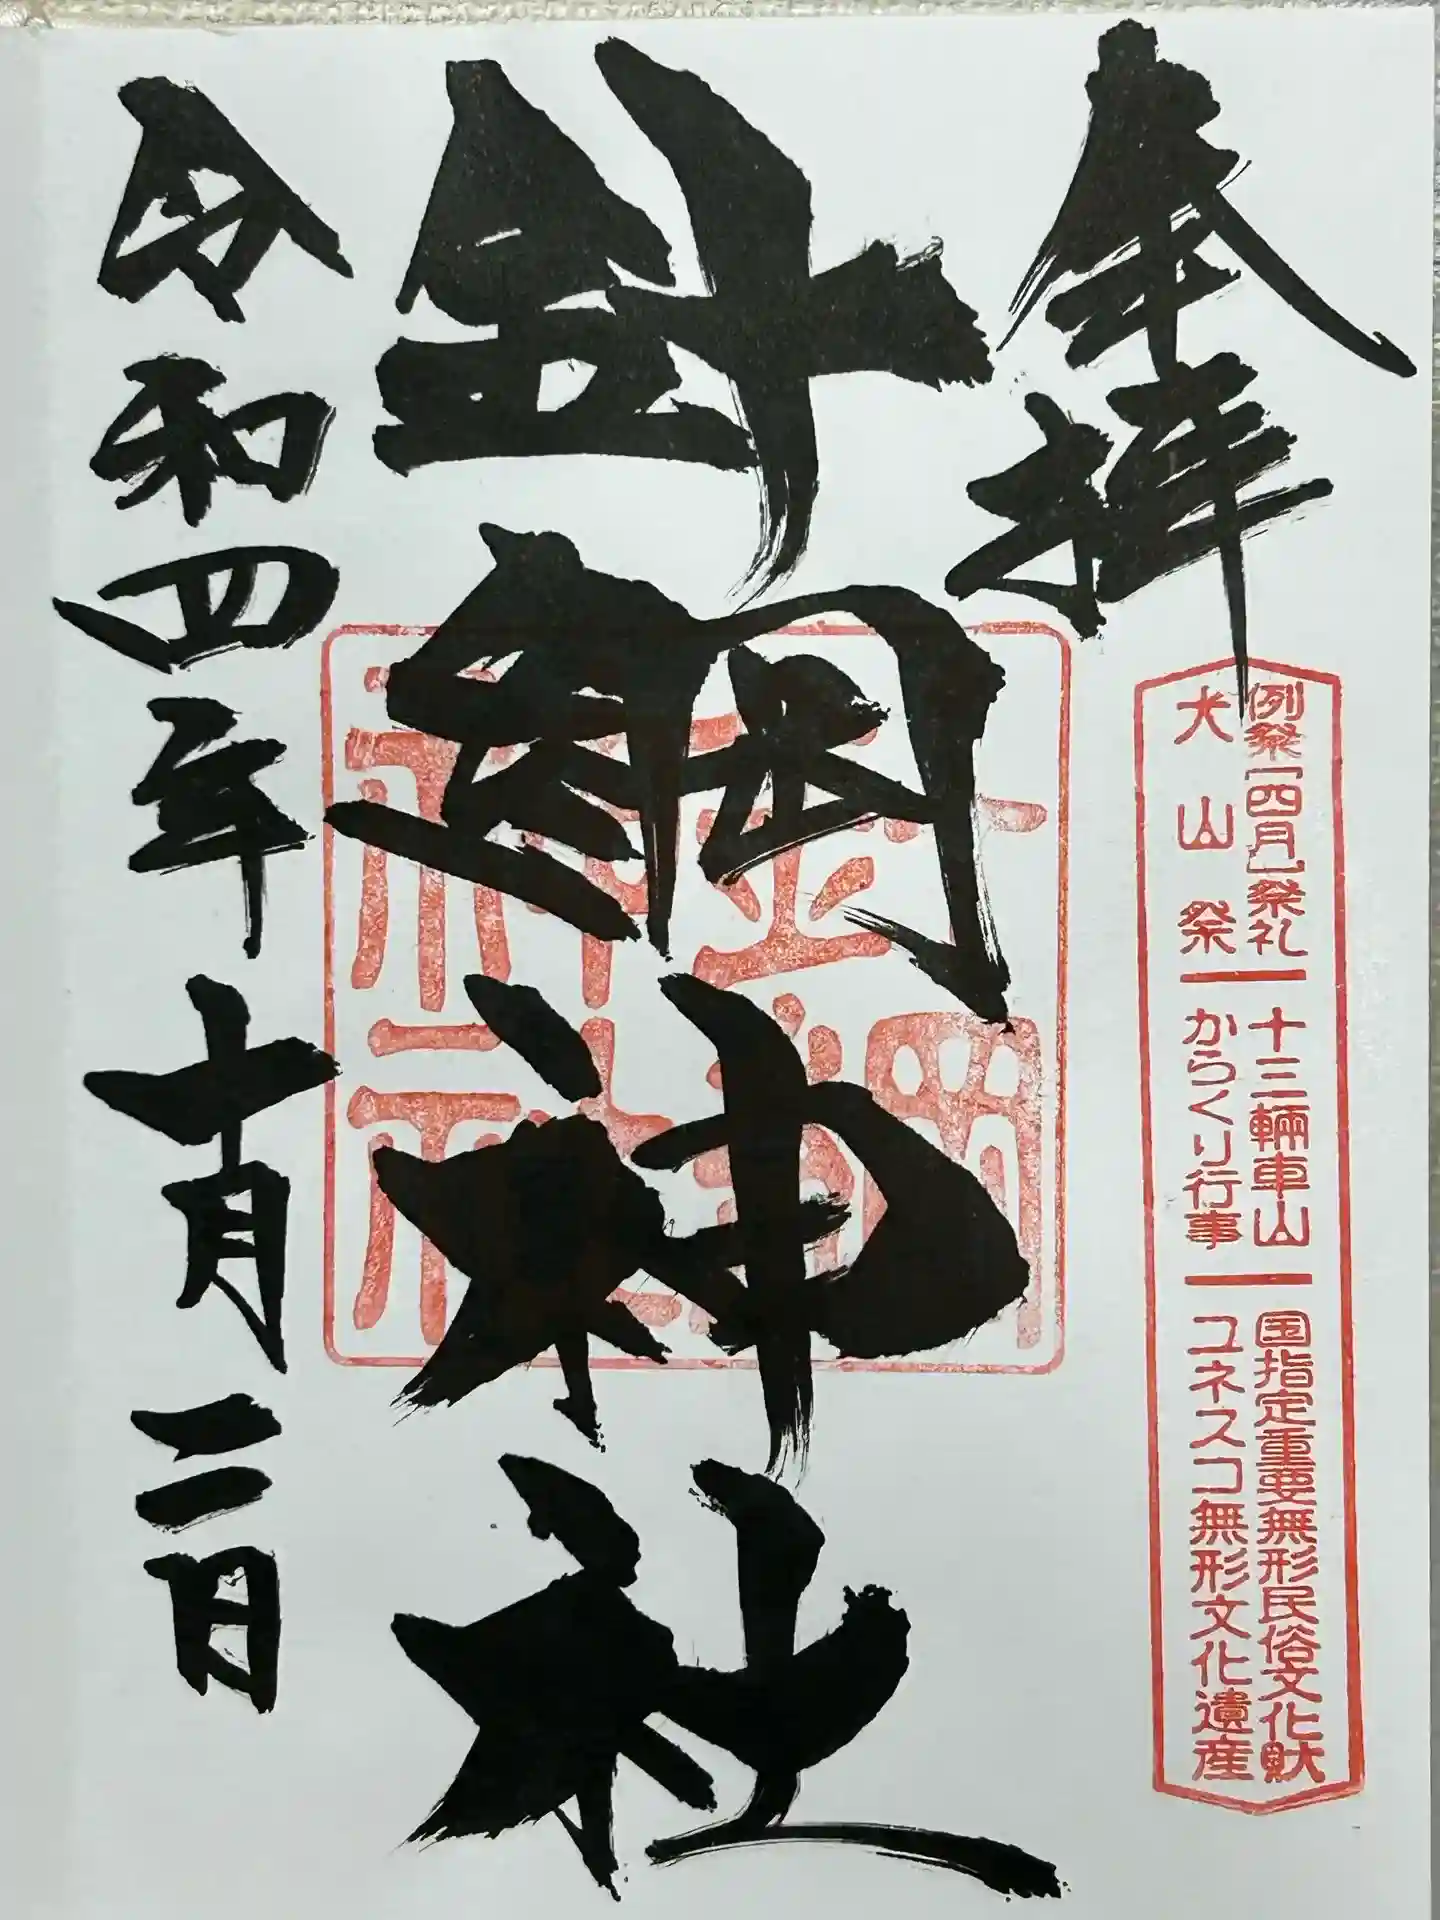 奉拝
例祭「四月」祭礼 十三輛車山 国指定重要無形民俗文化財
犬山祭 からくり行事 ユネスコ無形文化遺産
針綱神社
針綱
神社
令和四年十月二日